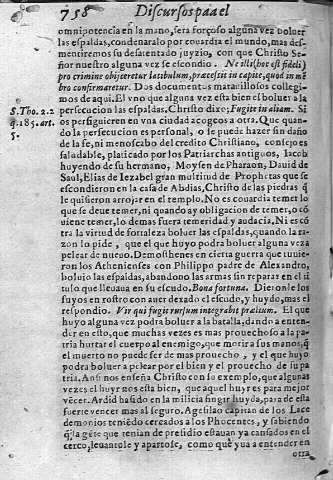 758
Discursos para el
omnipotencia en la mano, sera forçoso alguna vez boluer
las espaldas, condenaralo por couardia el mundo, mas des-
mentiremos su desatentado juyzio, con que Christo Se-
ñor nuestro alguna vez se escondio. Ne illi (hoc est fideli)
pro crimine obijceretur latibulum, præcessit in capite, quod in mẽ
bro confirmaretur. Dos documentos marauillosos collegi-
mos de aqui. El vno que alguna vez esta bien el boluer a la
S. Tho. 2. 2
persecucion las espaldas. Christo dixo; Fugite in aliam. Si
q. 185. art.
os persiguieren en vna ciudad acogeos a otra. Que quando
5.
la persecucion es personal, o se puede hazer sin daño
de la fe, ni menoscabo del credito Christiano, consejo es
saludable, platicado por los Patriarchas antiguos, Iacob
huyendo de su hermano, Moysen de Pharaon, Dauid de
Saul, Elias de Iezabel gran multitud de Prophetas que se
escondieron en la casa de Abdias, Christo de las piedras q̃
le quisieron arrojar en el templo. No es couardia temer lo
que se deue temer, ni quando ay obligacion de temer, o cõ
uiene temer, lo demas fuera temeridad y audacia, Ni es cõ
tra la virtud de fortaleza boluer las espaldas, quando la ra-
zon lo pide, que el que huyo podra boluer alguna vez a
pelear de nueuo. Demosthenes en cierta guerra que tuuie-
ron los Athenienses con Philippo padre de Alexandro,
boluio las espaldas, abandono las armas sin reparar en el ti
tulo que lleuaua en su escudo. Bona fortuna. Dieronle los
suyos en rostro con auer dexado el escudo, y huydo, mas el
respondio. Vir qui fugit rursum integrabit prælium. El que
huyo alguna vez podra boluer a la batalla, dando a enten-
der en esto, que muchas vezes es mas prouechoso a la pa-
tria hurtar el cuerpo al enemigo, que morir a sus manos, q̃
el muerto no puede ser de mas prouecho, y el que huyo
podra boluer a pelear por el bien y el prouecho de su pa-
tria. Ansi nos enseña Christo con su exemplo, que algunas
vezes el huyr nos esta bien, que aquel huyr es para mejor
vẽcer. Ardid ha sido en la milicia fingir huyda, para de esta
fuerte vencer mas al seguro. Agesilao capitan de los Lace
demonios teniẽdo cercados a los Phocentes, y sabiendo
q̃ la gẽte que tenian de presidio estauan ya cansados en el
cerco, leuantole y apartose, como que yua a entender en
otra